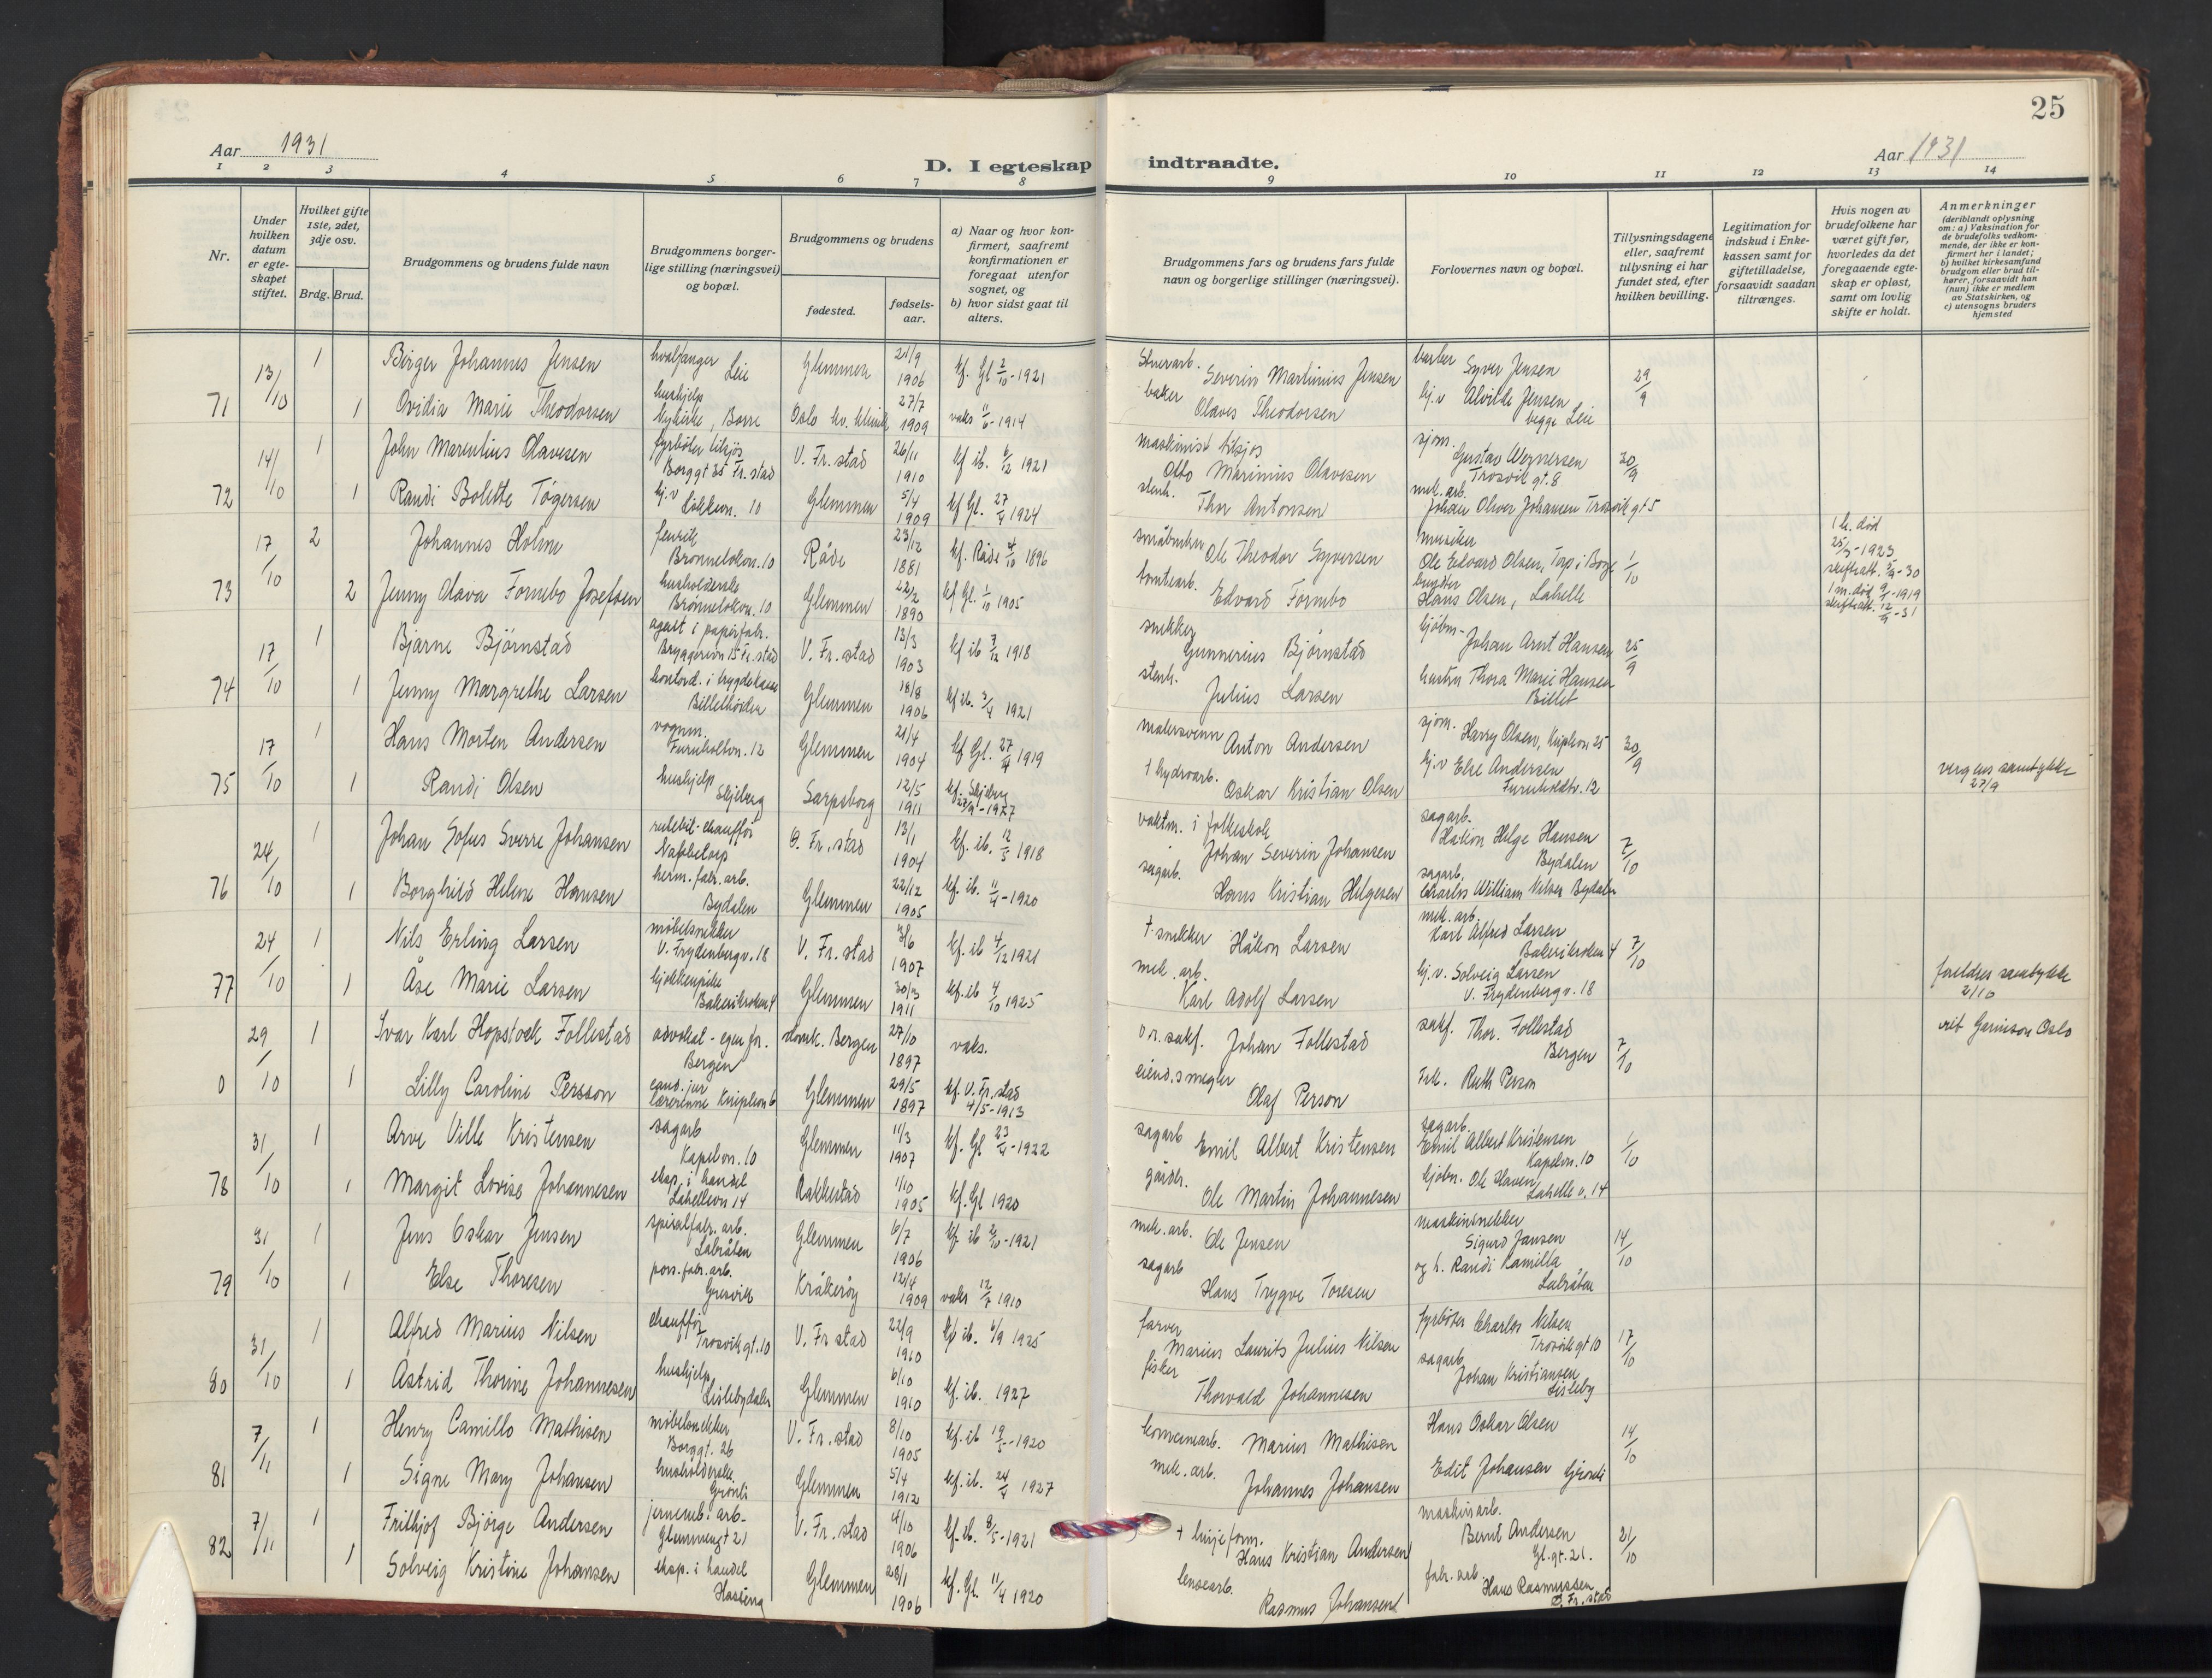 25
Aar 1931
D. I egteskap indtraadte.
Aar 1931
1 2 3 4 5 6 7 8 9 10 11 12 13 14
Nr.
Under hvilken datum er egte-skapet stiftet.
Hvilket gifte 1ste, 2det, 3dje osv.
Brdg. Brud.
Brudgommens og brudens fulde navn
Brudgommens borger-lige stilling (næringsvei) og bopæl.
Brudgommens og brudens
fødested.
fødsels-aar.
a) Naar og hvor kon-firmert, saafremt konfirmationen er foregaat utenfor sognet, og
b) hvor sidst gaat til alters.
Brudgommens fars og brudens fars fulde navn og borgerlige stillinger (næringsvei).
Forlovernes navn og bopæl.
Tillysningsdagene eller, saafremt tillysning ei har fundet sted, efter hvilken bevilling.
Legitimation for indskud i Enke-kassen samt for giftetilladelse, forsaavidt saadan tiltrænges.
Hvis nogen av brudefolkene har været gift før, hvorledes da det foregaaende egte-skap er opløst, samt om lovlig skifte er holdt.
Anmerkninger
(deriblandt oplysning om: a) Vaksination for de brudefolks vedkom-mende, der ikke er kon-firmert her i landet; b) hvilket kirkesamfund brudgom eller brud til-hører, forsaavidt han (hun) ikke er medlem av Statskirken, og c) utensogns bruders hjemsted
71 13/10 1 Birger Johannes Jensen hvalfanger Leie Glemmen 21/9 1906 kf. Gl 2/10-1921 Severin Martinius Jensen barber Syver Jensen 29/9
1 Ovidia Marie Theodorsen hushjelp Nykirke, Borre Oslo kv. klinik 27/7 1909 vaks 11/6-1914 baker Olaves Theodorsen hj.v Alvilde Jensen begge Leie
72 14/10 1 John Marentius Olavesen fyrbøter tilsjøs Borggt 25 Fr. stad V. Fr. stad 26/11 1910 kf ib. 6/12 1921 maskinist tilsjøs Otto Marinius Olavesen sjøm. Gustav Wernersen Trosvik gt. 8 30/9
1 Randi Bolette Tøgersen hj.v 10 Glemmen 5/4 1909 kf Gl. 27/4 1924 stenh. Thor Antonsen mek. arb. Johan Oliver Johansen Trosvik gt 5
73 17/10 2 Johannes Holm Brønneløkvn. 10 Råde 23/12 1881 kf. Råde 4/10 1896 småbruker Ole Theodor Syversen musiker Ole Edvard Olsen, Torp i Borge 1/10 1 h. død 25/5-1923 skifteatt. 5/9-30
2 Jenny Olava Formbo Josefsen husholderske Brønneløkvn. 10 Glemmen 22/2 1890 kf Gl. 1/10 1905 tomtearb. Edvard Formbo Hans Olsen, Labelle 1 m. død 9/1-1919 skifteatt. 12/9-31
74 17/10 1 Bjarne Bjørnstad agent i papirfabr. Bryggerivn 15 Fr. stad V. Fr. stad 13/3 1903 kf ib 7/12 1918 snekker Gunnerius Bjørnstad kjøbm- Johan Arnt Hansen 25/9
1 Jenny Margrethe Larsen kontord. i trygdekasse Billethöiden Glemmen 18/8 1906 kf ib. 3/4 1921 stenh. Julius Larsen hustru Thora Marie Hansen Billet
75 17/10 1 Hans Morten Andersen vognm. Furuholtvn. 12 Glemmen 21/4 1904 kf Gl. 27/4 1919 malersvenn Anton Andersen sjøm. Harry Olsen, Kniplevn 25 30/9
1 Randi Olsen hushjelp Skjeberg Sarpsborg 12/5 1911 kf. Skjeberg 27/9-1927 † hydroarb. Oskar Kristian Olsen hj.v Else Andersen Furuholdtv. 12 vergens samtykke 27/9
76 24/10 1 Johan Sofus Sverre Johansen rutebil-chauffør Nabbetorp Ø. Fr. stad 13/1 1904 kf. ib. 12/5 1918 vaktm. i folkeskole Johan Severin Johansen sagarb. Håkon Helge Hansen Bydalen 7/10
1 Borghild Helene Hansen herm. fabr. arb. Bydalen Glemmen 22/12 1905 kf. ib. 11/4-1920 sagarb. Hans Kristian Helgesen sagarb. Charles William Nilsen Bydalen
77 24/10 1 Nils Erling Larsen møbelsnekker V. Frydenbergv. 18 V. Fr. stad 7/6 1907 kf. ib 4/12 1921 † snekker Håkon Larsen mek. arb. Karl Alfred Larsen Bakerikroken 4 7/10
1 Åse Marie Larsen kjøkkenpike Bakerikroken 4 Glemmen 30/3 1911 kf. ib 4/10 1925 mek. arb. Karl Adolf Larsen hj. v. Solveig Larsen V. Frydenberg v. 18 foreldres samtykke 2/10
0 29/10 1 Ivar Karl Hopstock Follestad advokat - egen for. Bergen Bergen 27/10 1897 vaks. o.r. sakf. Johan Follestad sakf. Thor. Follestad Bergen 7/10 Garnison Oslo
1 Lilly Caroline Persson cand. jur lærerinne Kniplevn 6 Glemmen 29/5 1897 kf. V. Fr. stad 4/5-1913 eiend.smegler Olaf Person Frk. Ruth Person
78 31/10 1 Arve Ville Kristensen sagarb Kapelvn. 10 Glemmen 11/3 1907 kf. Gl 23/4-1922 sagarb Emil Albert Kristensen sagarb. Emil Albert Kristensen Kapelvn. 10 1/10
1 Margit Lovise Johannesen eksp. i handel Labellevn 14 Rakkestad 1/10 1905 kf. Gl 1920 gårdbr. Ole Martin Johannesen kjøbm. Ole Haven, Labelle v. 14
79 31/10 1 Jens Oskar Jensen spiralfabr. arb. Labråten Glemmen 6/7 1906 kf. ib 2/10-1921 mek. arb. Ole Jensen maskinsnekker Sigurd Jansen 14/10
1 Else Thoresen pors. fabr. arb. Gresvik Kråkerøy 12/4 1909 vaks 12/7 1910 sagarb Hans Trygve Toresen og h. Randi Kamilla Labråten
80 31/10 1 Alfred Marius Nilsen chauffør Trosvikgt. 10 V. Fr stad 22/9 1910 kf ib. 6/9 1925 farver Marius Laurits Julius Nilsen fyrbøter Charles Nilsen Trosvik gt 10 17/10
1 Astrid Thorine Johannesen hushjelp Lislebydalen Glemmen 6/10 1910 kf. ib. 1927 fisker Thorvald Johannesen sagarb Johan Kristiansen Lisleby
81 7/11 1 Henry Camillo Mathisen møbelsnekker Borggt. 26 V. Fr. stad 8/10 1905 kf. ib 19/5-1920 Marius Mathisen Hans Oskar Olsen 14/10
1 Signe Mary Johansen husholderske Grønli Glemmen 5/4 1912 kf. ib. 24/4 1927 mek. arb. Johannes Johansen Edit Johansen Grønli
82 7/11 1 Frithjof Bjørge Andersen jernemb. arb- Glemmengt 21 V. Fr. stad 4/10 1906 kf. ib. 8/5-1921 † Hans Kristian Andersen maskinarb. Bernt Andersen Gl. gt. 21. 21/10
1 Solveig Kristine Johansen eksp. i handel Hasseng Glemmen 28/1 1906 kf. Gl. 11/4 1920 lensearb. Rasmus Johansen fabr. arb Hans Rasmussen Ø. Fr. stad